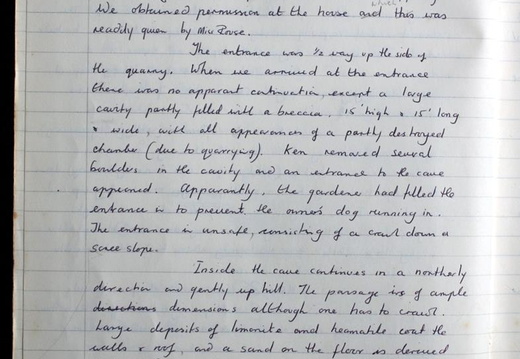 We obtained permission at the house and this was
readily given by Miss
The entrance was ½ way up the side of
the quarry. When we arrived at the entrance
there was no apparant continuation, except a large
cavity partly filled with a breccia, 15' high x 15' long
x wide, with all appearances of a partly destroyed
chamber (due to quarrying). Ken removed several
boulders in the cavity and an entrance to the cave
appeared. Apparantly, the gardener had filled the
entrance in to prevent the owner's dog running in.
The entrance is unsafe, consisting of a crawl down a
scree slope.
Inside the cave continues in a northerly
direction and gently up hill. The passage is of ample
dimensions although one has to crawl.
Large deposits of limonite and heamatite coat the
walls & roof, and a sand on the floor is derived